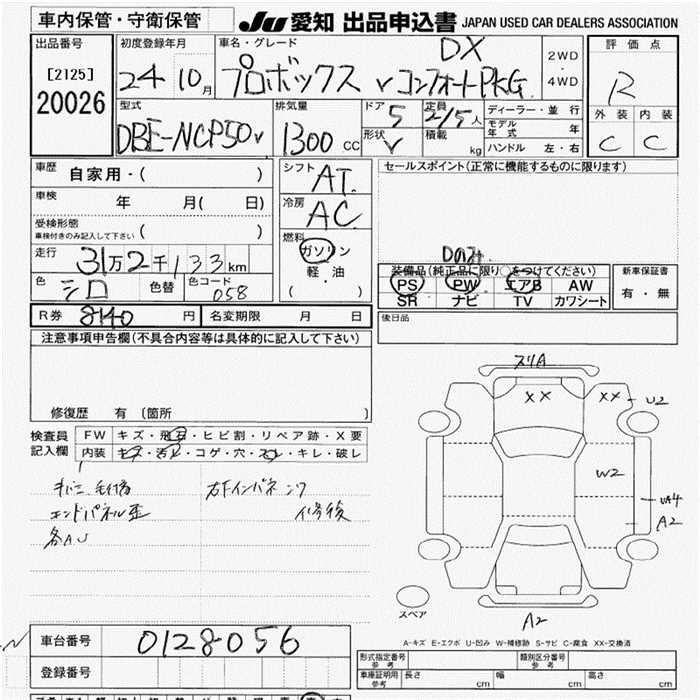 車内保管・守衛保管
JU 愛知 出品申込書 JAPAN USED CAR DEALERS ASSOCIATION
出品番号 初度登録年月 車名・グレード DX 2WD ・ 4WD 評価点
[2125] 24 10月 プロボックス v コンフォートPKG. R
20026
型式 排気量 ドア 5 定員 2/5人 ディーラー・並行 外装 内装
DBE-NCP50v 1300 CC 形状 V 積載 kg モデル年式 年 C C
ハンドル 左・右
車歴 自家用・( ) シフト AT. セールスポイント(正常に機能するものに限ります)
車検 年 月( 日) 冷房 AC
受検形態
車検付きのみ記入して下さい ( ) 燃料 Dのみ.
走行 31万2千133km ガソリン 装備品(純正品に限り○をつけてください) 新車保証書
軽・油 PS PW エアB AW 有・無
色 シロ 色替 色コード 058 ( ) SR ナビ TV カワシート
R券 8140 円 名変期限 月 日 後日品
注意事項申告欄(不具合内容等は具体的に記入して下さい)
修復歴 有 (箇所 )
検査員 FW キズ・飛石・ヒビ割・リペア跡・X要
記入欄 内装 キズ・汚れ・コゲ・穴・スレ・キレ・破レ
右下インパネ
エンドパネル歪 修後
各A.U
スリA
XX XX U2
W2
A2
スペア
A2
A-キズ E-エクボ U-凹み W-補修跡 S-サビ C-腐食 XX-交換済
車台番号 0128056
登録番号
形式指定番号 参考 類別区分番号 参考
車庫証明用 参考 長さ cm 幅 cm 高さ cm